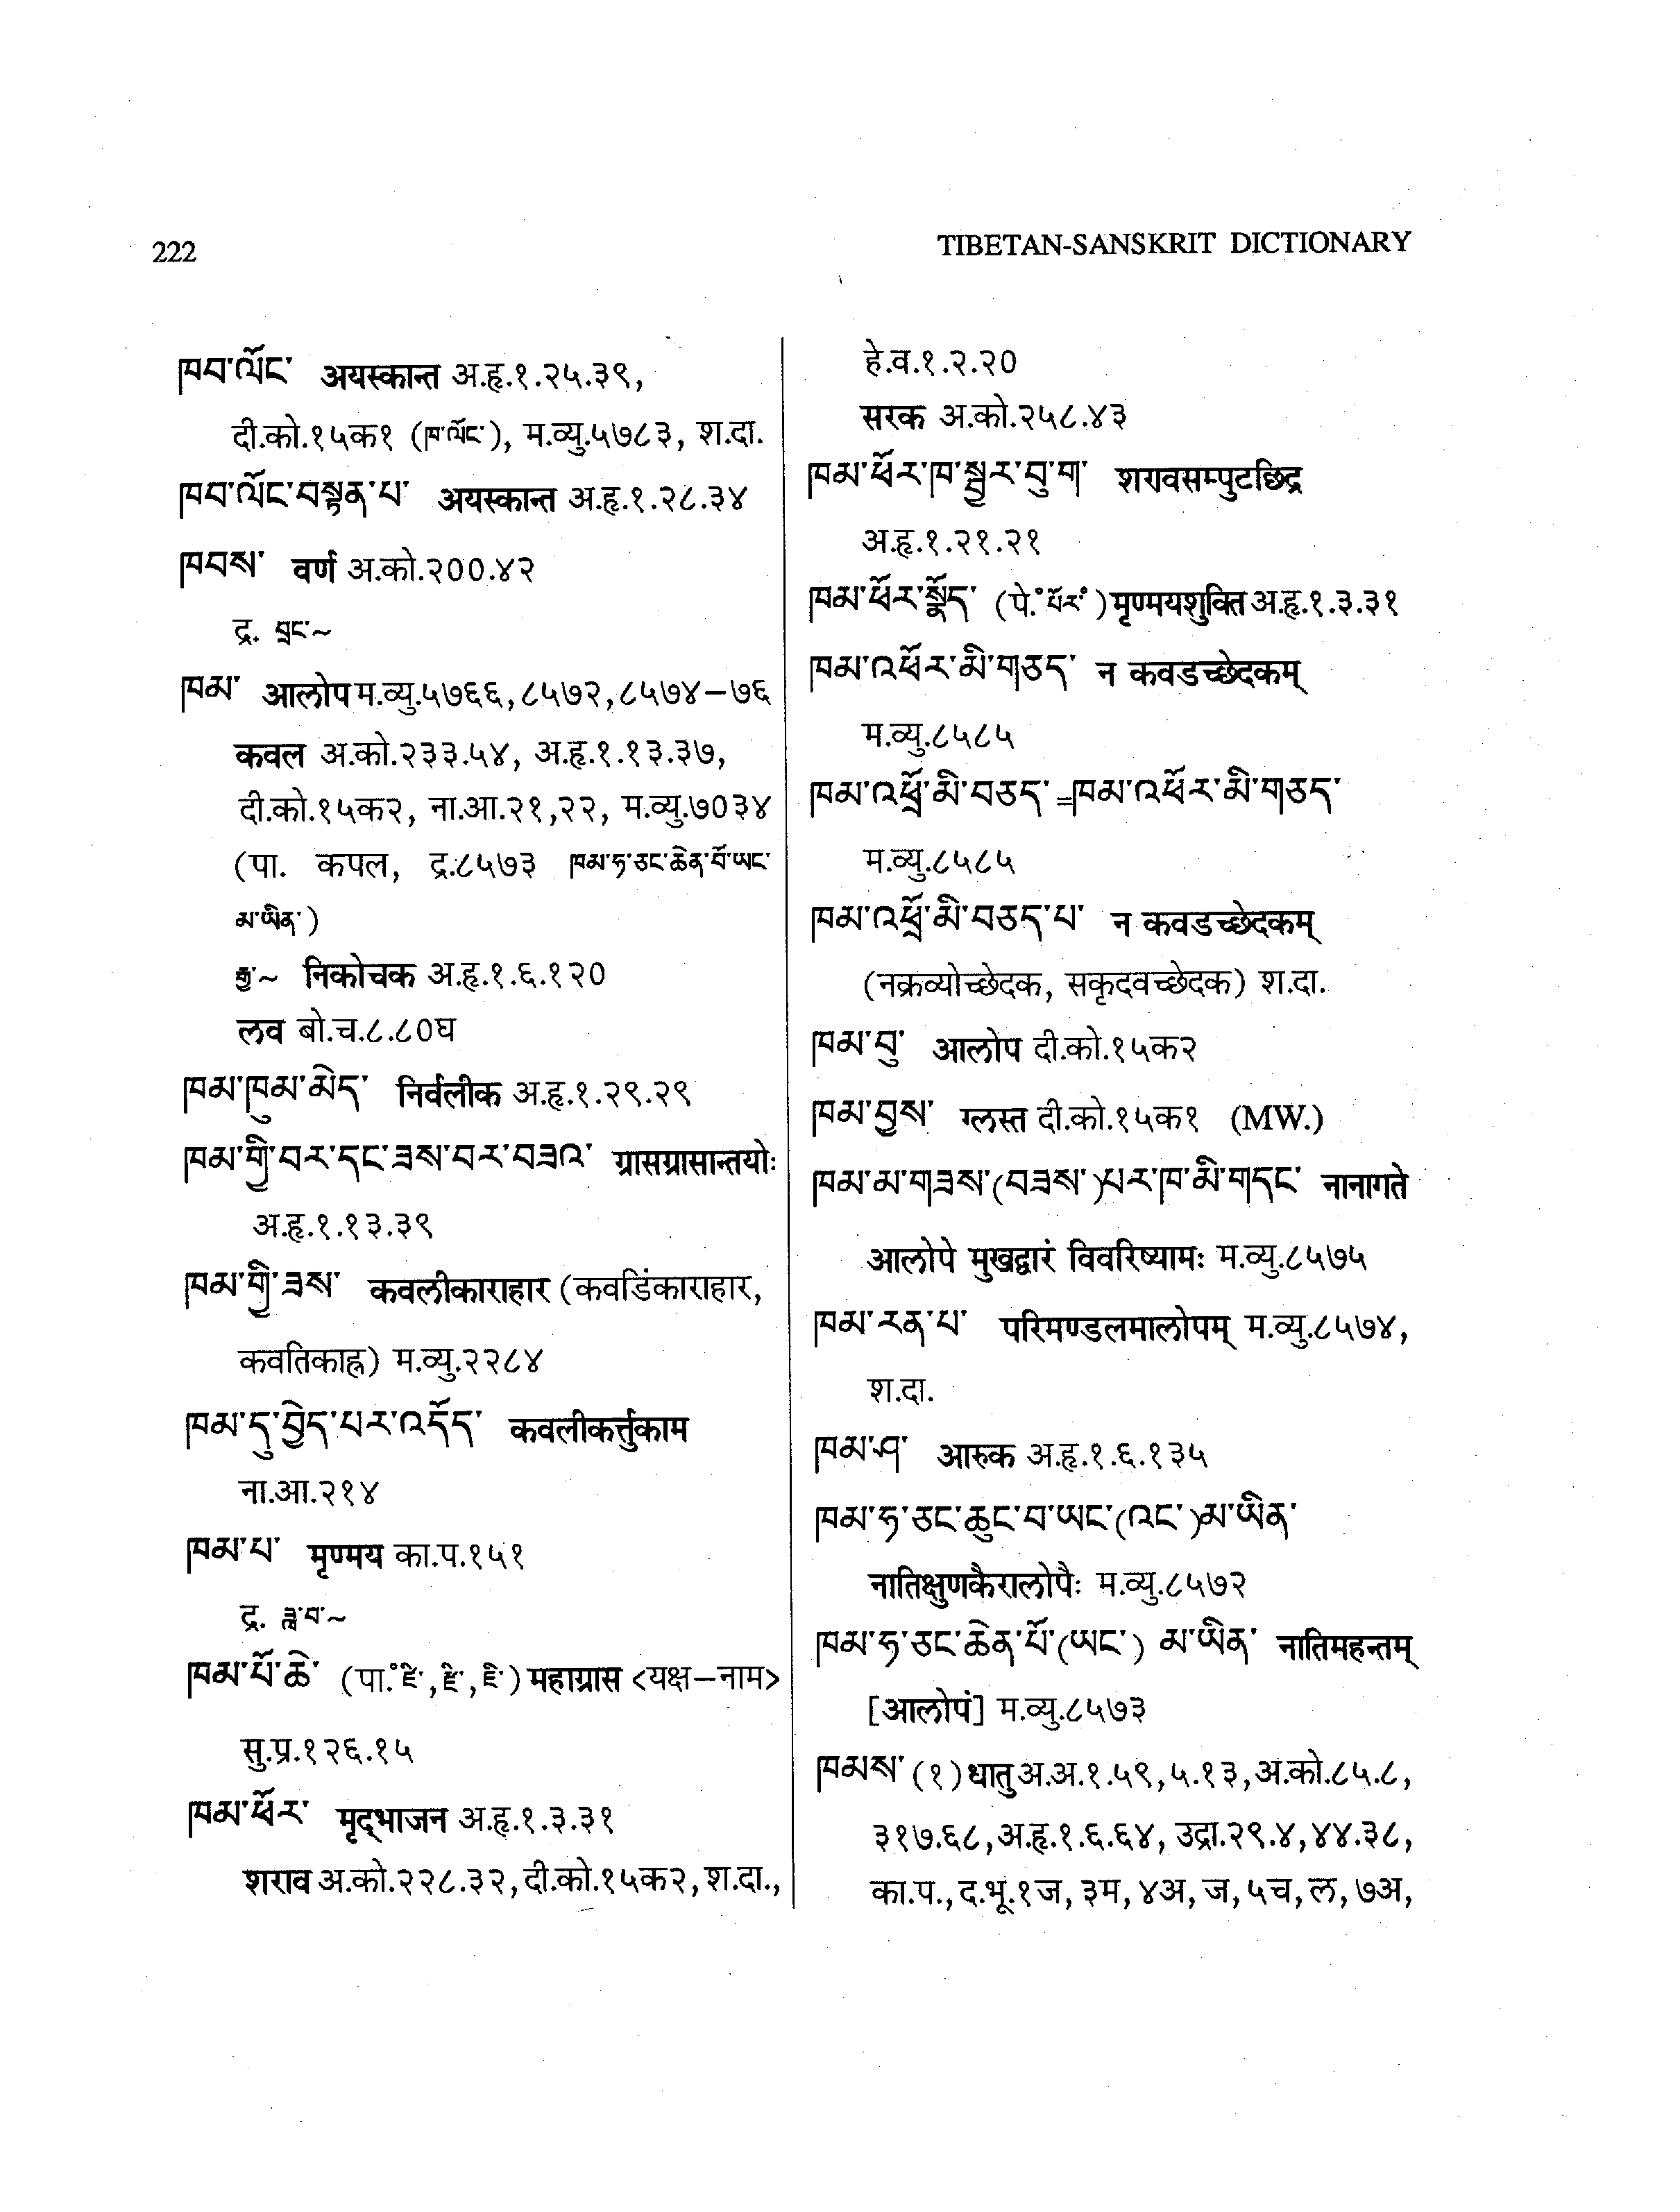 222
TIBETAN-SANSKRIT DICTIONARY
ཁབ་ལོང་ अयस्कान्त अ.हृ.१.२५.३९,
दी.को.१५क१ (ཁ་ལོང་), म.व्यु.५७८३, श.दा.
ཁབ་ལོང་བསྟན་པ་ अयस्कान्त अ.हृ.१.२८.३४
ཁབས་ वर्ण अ.को.२००.४२
द्र. བྲང་~
ཁམ་ आलोप म.व्यु.५७६६,८५७२,८५७४-७६
कवल अ.को.२३३.५४, अ.हृ.१.१३.३७,
दी.को.१५क२, ना.आ.२१,२२, म.व्यु.७०३४
(पा. कपल, द्र.८५७३ ཁམ་ཧ་ཅང་ཆེན་པོ་ཡང་
མ་ཡིན་)
~ निकोचक अ.हृ.१.६.१२०
लव बो.च.८.८०घ
ཁམ་ཁུམ་མེད་ निर्वलीक अ.हृ.१.२९.२९
ཁམ་གྱི་བར་དང་ཟས་བར་བཟའ་ ग्रासग्रासान्तयोः
अ.हृ.१.१३.३९
ཁམ་གྱི་ཟས་ कवलीकाराहार (कवडिंकाराहार,
कवतिकाह्न) म.व्यु.२२८४
ཁམ་དུ་བྱེད་པར་འདོད་ कवलीकर्त्तुकाम
ना.आ.२१४
ཁམ་པ་ मृण्मय का.प.१५१
द्र. ~
ཁམ་པོ་ཆེ་ (पा.) महाग्रास <यक्ष-नाम>
सु.प्र.१२६.१५
ཁམ་ཕོར་ मृद्भाजन अ.हृ.१.३.३१
शराव अ.को.२२८.३२, दी.को.१५क२, श.दा.,
हे.व.१.२.२०
सरक अ.को.२५८.४३
ཁམ་ཕོར་ཁ་སྦྱར་བུ་ག་ शरावसम्पुटछिद्र
अ.हृ.१.२१.२१
ཁམ་ཕོར་སྣོད་ (पे.॰པོར་॰) मृण्मयशुक्ति अ.हृ.१.३.३१
ཁམ་འཕོར་མི་གཅད་ न कवडच्छेदकम्
म.व्यु.८५८५
ཁམ་འཕྲོ་མི་བཅད་=ཁམ་འཕོར་མི་གཅད་
म.व्यु.८५८५
ཁམ་འཕྲོ་མི་བཅད་པ་ न कवडच्छेदकम्
(नक्रव्योच्छेदक, सकृदवच्छेदक) श.दा.
ཁམ་བུ་ आलोप दी.को.१५क२
ཁམ་བྱས་ ग्लस्त दी.को.१५क१ (MW.)
ཁམ་མ་གཟས་(བཟས་)པར་ཁ་མི་གདང་ नानागते
आलोपे मुखद्वारं विवरिष्यामः म.व्यु.८५७५
ཁམ་རན་པ་ परिमण्डलमालोपम् म.व्यु.८५७४,
श.दा.
ཁམ་ཤ་ आरुक अ.हृ.१.६.१३५
ཁམ་ཧ་ཅང་ཆུང་བ་ཡང་(འང་)མ་ཡིན་
नातिक्षुणकैरालोपैः म.व्यु.८५७२
ཁམ་ཧ་ཅང་ཆེན་པོ་(ཡང་) མ་ཡིན་ नातिमहन्तम्
[आलोपं] म.व्यु.८५७३
ཁམས་ (१) धातु अ.अ.१.५९,५.१३, अ.को.८५.८,
३१७.६८, अ.हृ.१.६.६४, उद्रा.२९.४,४४.३८,
का.प., द.भू.१ज, ३म, ४अ, ज, ५च, ल, ७अ,